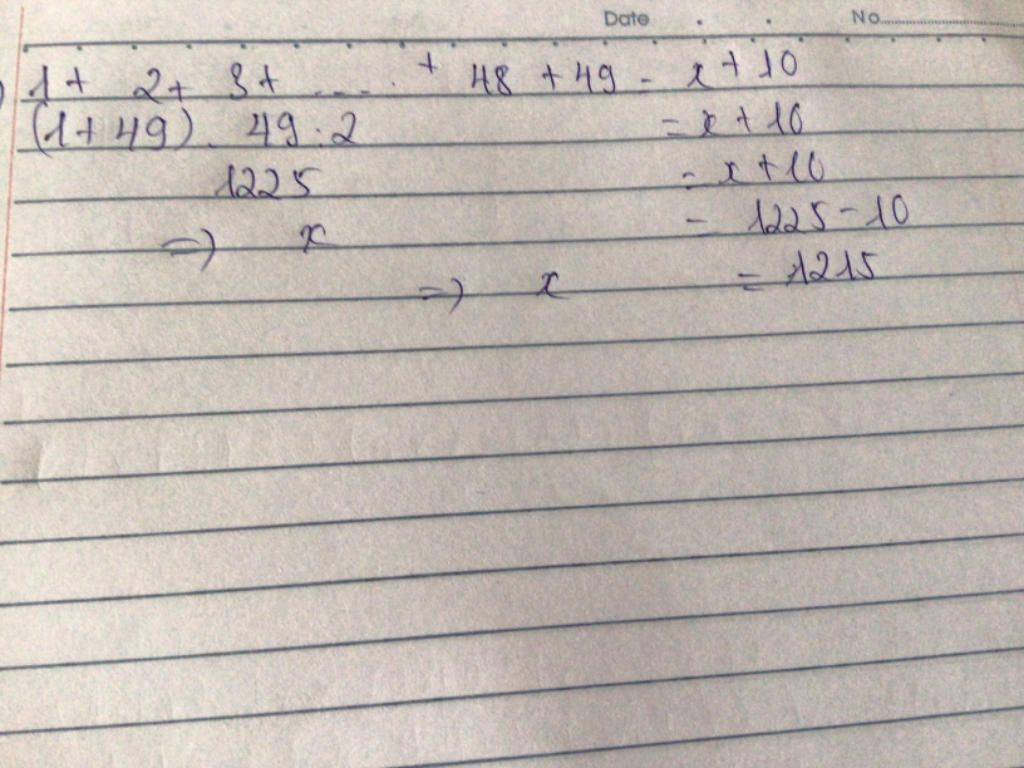 Date . . No...............
) 1 + 2 + 3 + ..... + 48 + 49 = x + 10
(1 + 49) . 49 : 2 = x + 10
1225 = x + 10
=) x = 1225 - 10
=) x = 1215